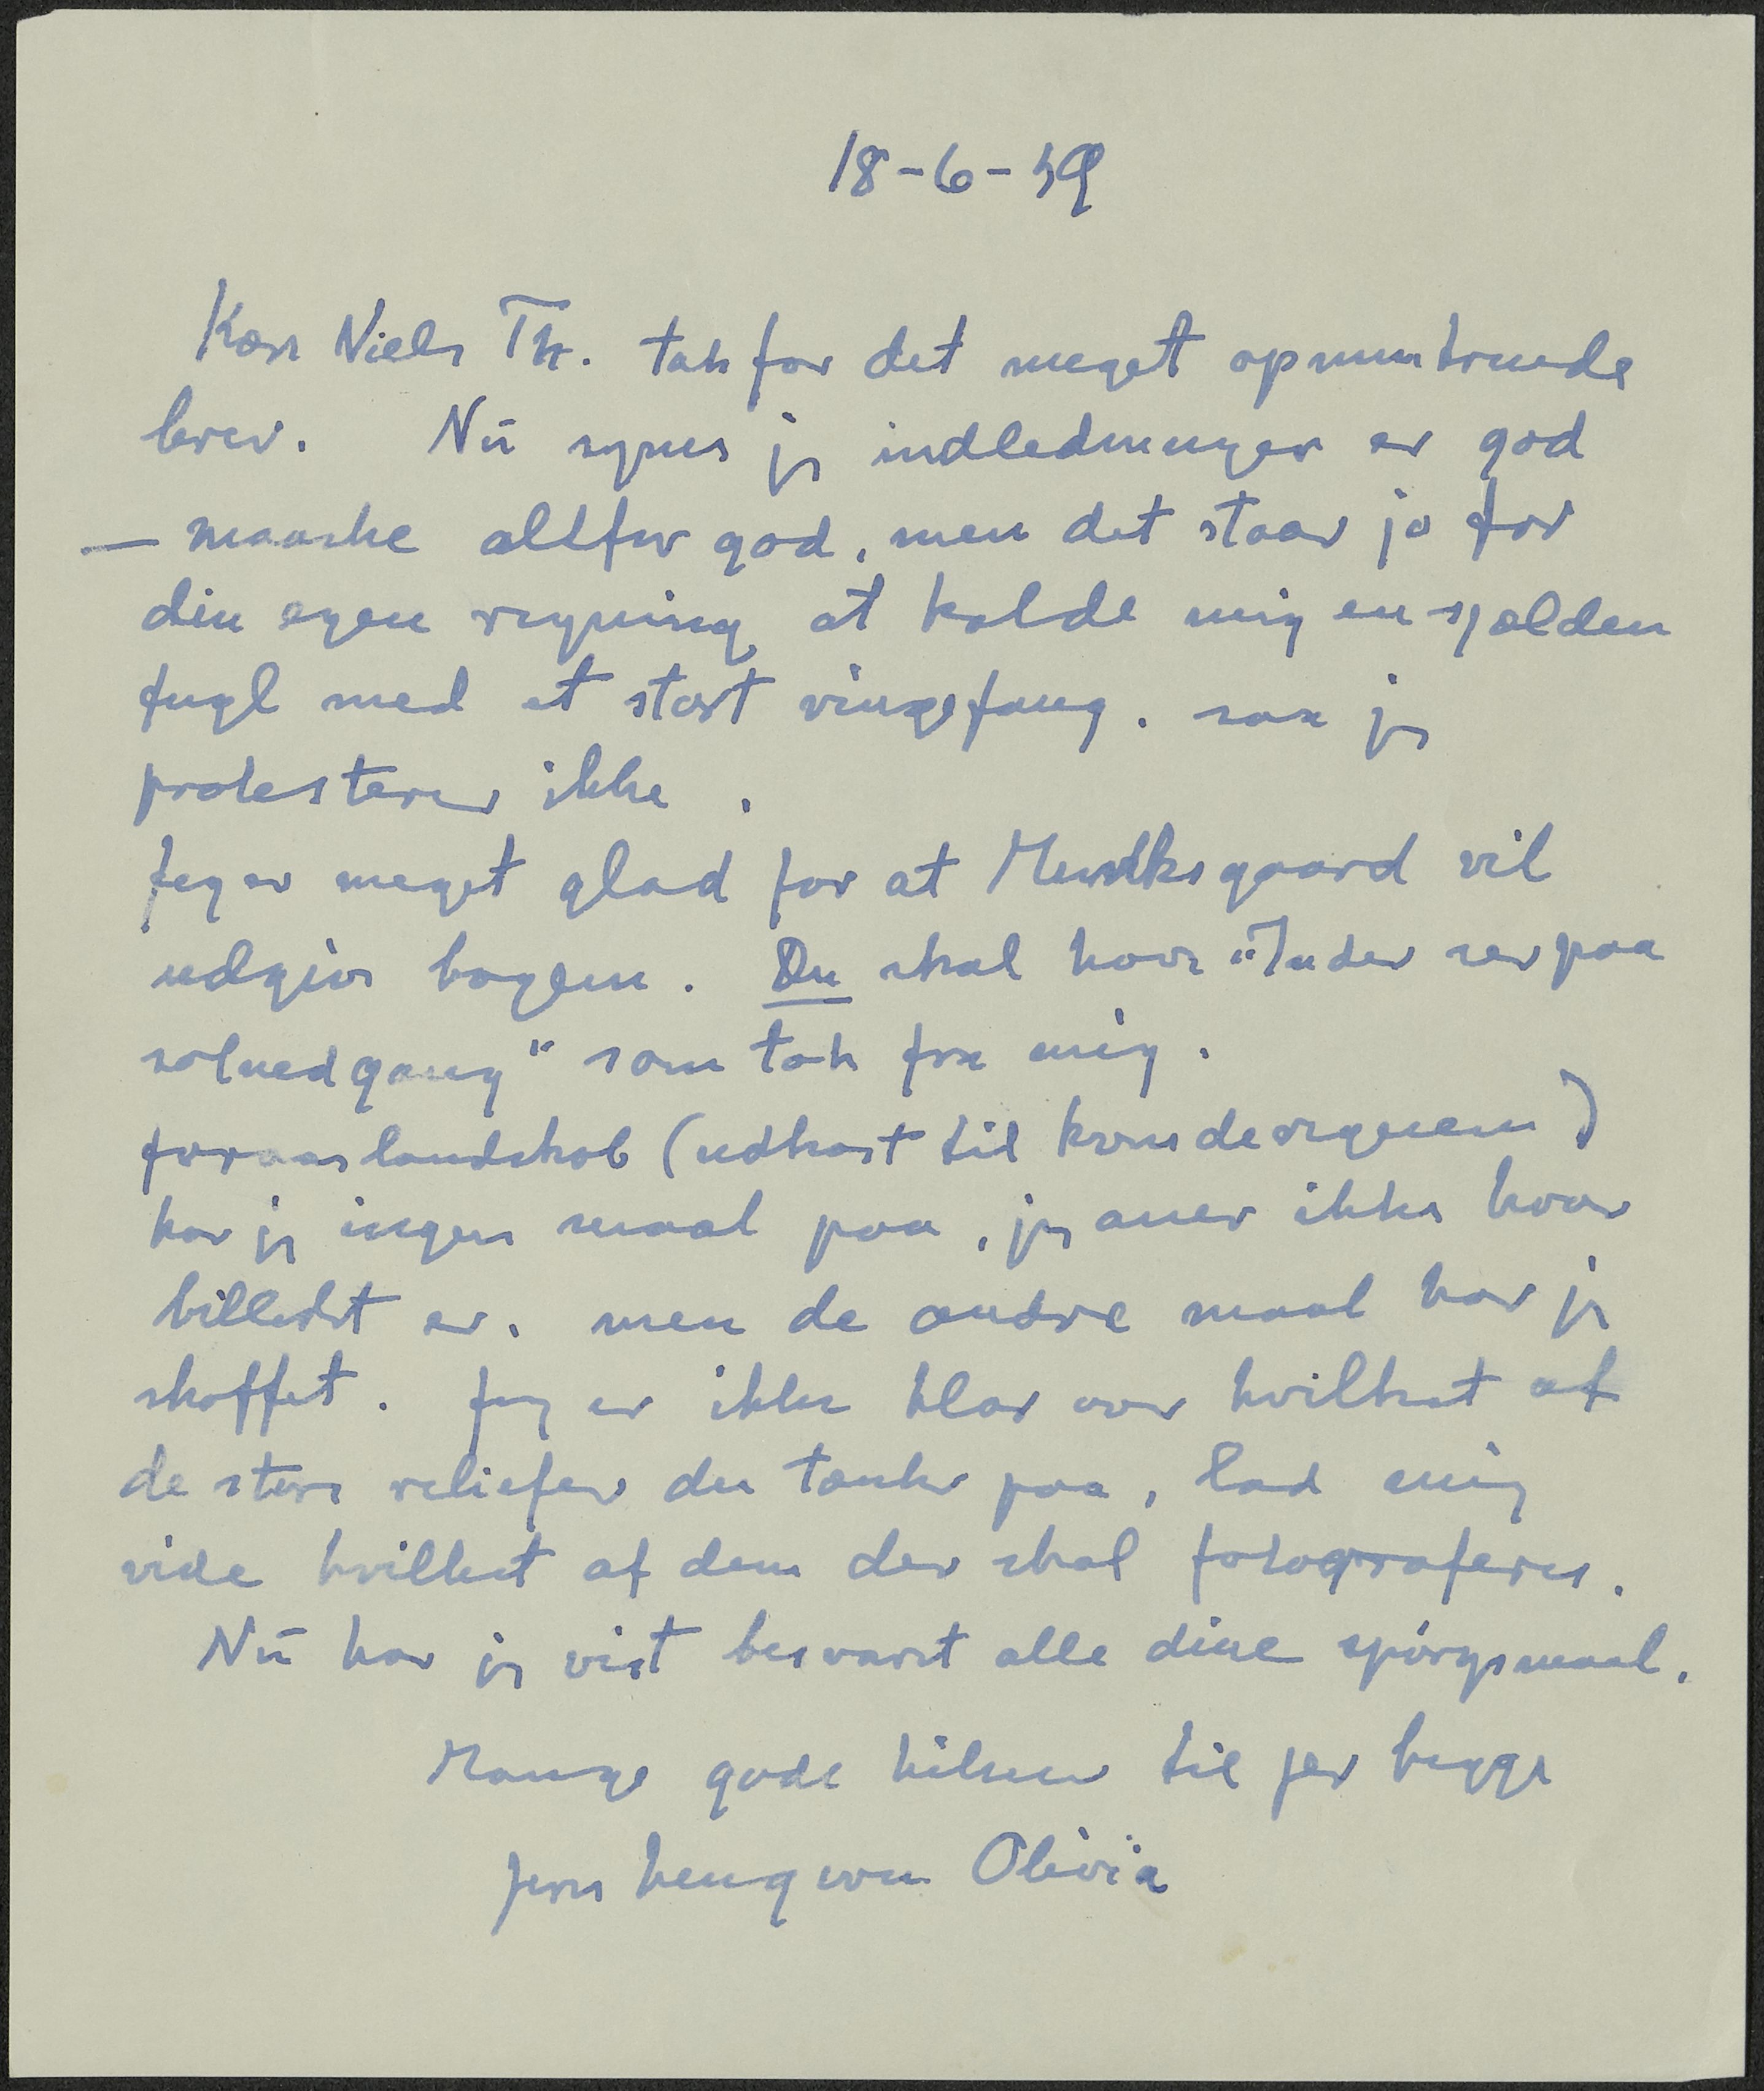 18-6-59
Kære Niels Th. tak for det meget opmuntrende
brev. Nu synes jeg indledningen er god
— maaske altfor god, men det staar jo for
din egen regning at kalde mig en sjælden
fugl med et stort vingefang. saa jeg
protesterer ikke.
Jeg er meget glad for at Munksgaard vil
udgive bogen. Du skal have "Inder ser paa
solnedgang" som tak fra mig.
foraarslandskab (udkast til
har jeg ingen maal paa, jeg aner ikke hvor
billedet er. men de andre maal har jeg
skaffet. Jeg er ikke klar over hvilket af
de store reliefer du tænker paa, lad mig
vide hvilket af dem der skal fotograferes.
Nu har jeg vist besvaret alle dine spörgsmaal.
Mange gode hilsner til jer begge
fra hengivne Olivia